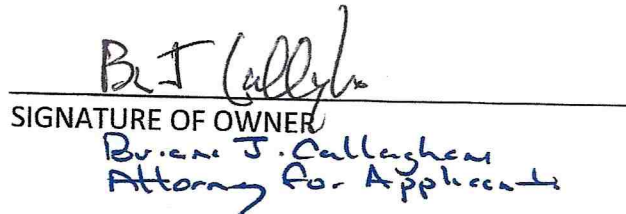 Br J Callagha
SIGNATURE OF OWNER
Brian J. Callaghan
Attorney for Applicants